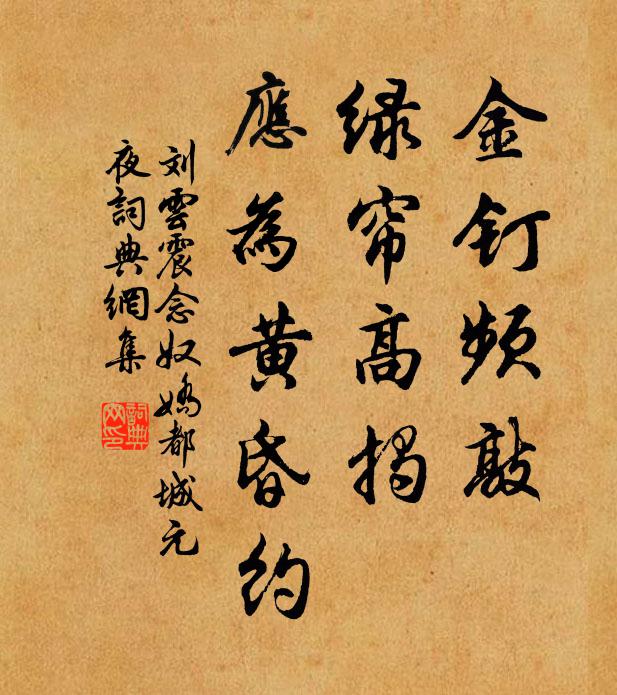 金钉频敲
绿帘高揭
應為黄昏约
刘雲震念奴嬌都城元
夜詞典網集
詞典
网印